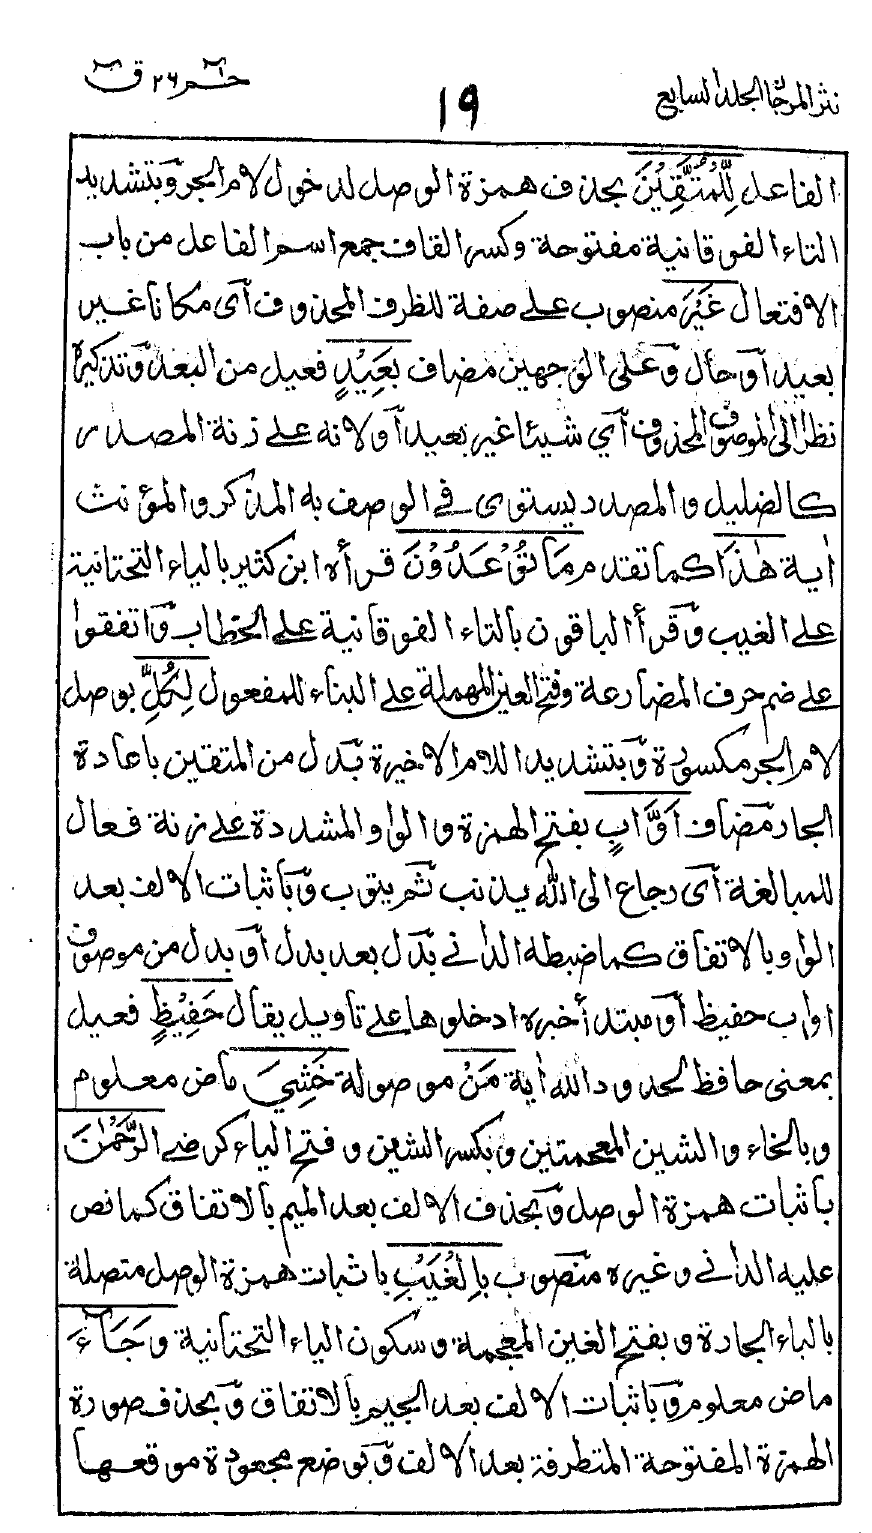 نثر المرجان المجلد السابع
١٩
حٰم ٢٦ ق
الفاعل لِلْمُتَّقِيْنَ بحذف همزة الوصل لدخول لام الجر وبتشديد
التاء الفوقانية مفتوحة وكسر القاف جمع اسم الفاعل من باب
الافتعال غَيْرَ منصوب على صفة للظرف المحذوف أى مكانا غير
بعيد أو حال وعلى الوجهين مضاف بَعِيْدٍ فعيل من البعد وتذكيره
نظرا الى الموصوف المحذوف أي شيئا غير بعيد أو لانه على زنة المصدر
كالضليل والمصدر يستوى في الوصف به المذكر والمؤنث
أية هٰذَا كما تقدم مَا تُوْعَدُوْنَ قرأه ابن كثير بالياء التحتانية
على الغيب وقرأ الباقون بالتاء الفوقانية على الخطاب واتفقوا
على ضم حرف المضارعة وفتح العين المهملة على البناء للمفعول لِكُلِّ بوصل
لام الجر مكسورة وبتشديد اللام الاخيرة بدل من المتقين باعادة
الجار مضاف أَوَّابٍ بفتح الهمزة والواو المشددة على زنة فعال
للمبالغة أى رجاع الى الله يذنب ثم يتوب وبأثبات الالف بعد
الواو بالاتفاق كما ضبطه الدانى بدل بعد بدل أو بدل من موصوف
اواب حفيظ أو مبتدأ خبره ادخلوها على تأويل يقال حَفِيْظٍ فعيل
بمعنى حافظ لحدود الله أية مَنْ موصولة خَشِيَ ماض معلوم
وبالخاء والشين المعجمتين وبكسر الشين وفتح الياء كرضى الرَّحْمٰنَ
بأثبات همزة الوصل وبحذف الالف بعد الميم بالاتفاق كما نص
عليه الدانى وغيره منصوب بِالْغَيْبِ باثبات همزة الوصل متصلة
بالباء الجارة وبفتح الغين المعجمة وسكون الياء التحتانية وَجَآءَ
ماض معلوم وبأثبات الالف بعد الجيم بالاتفاق وبحذف صورة
الهمزة المفتوحة المتطرفة بعد الالف وبوضع مجعودة موقعها